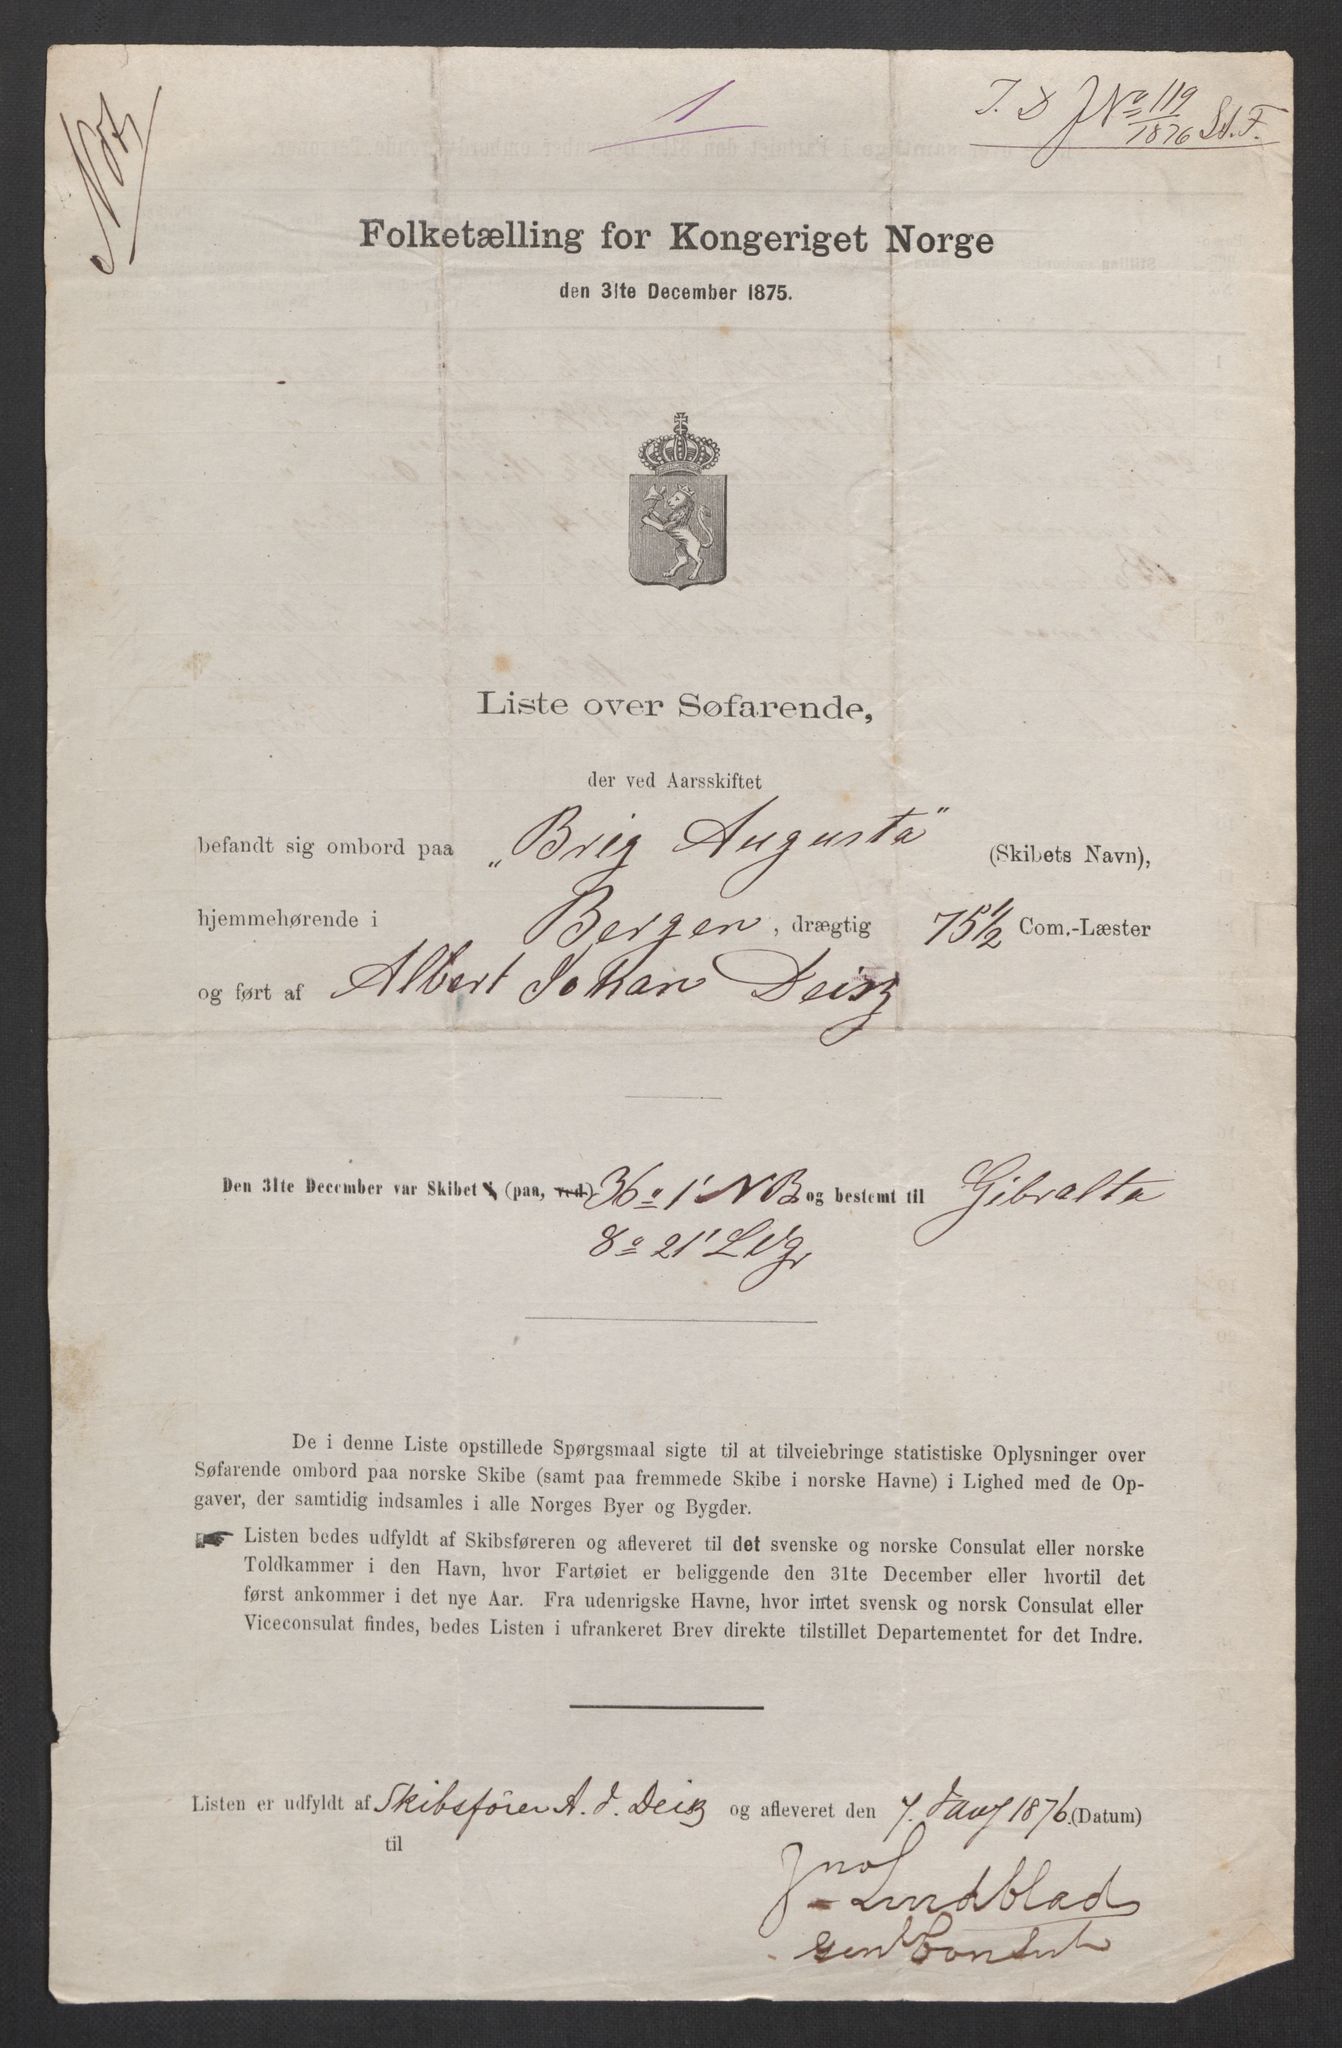 Not
1
I. D JNo 119/1876 St. F.
Folketælling for Kongeriget Norge
den 31te December 1875.
Liste over Søfarende,
der ved Aarsskiftet
befandt sig ombord paa „Brig Augusta" (Skibets Navn),
hjemmehørende i Bergen, drægtig 75 1/2 Com.-Læster
og ført af Albert Johan Deisz
Den 31te December var Skibet i (paa, ved) 36° 1' NB og bestemt til Gibralta
8° 21' Lg
De i denne Liste opstillede Spørgsmaal sigte til at tilveiebringe statistiske Oplysninger over
Søfarende ombord paa norske Skibe (samt paa fremmede Skibe i norske Havne) i Lighed med de Op-
gaver, der samtidig indsamles i alle Norges Byer og Bygder.
☛ Listen bedes udfyldt af Skibsføreren og afleveret til det svenske og norske Consulat eller norske
Toldkammer i den Havn, hvor Fartøiet er beliggende den 31te December eller hvortil det
først ankommer i det nye Aar. Fra udenrigske Havne, hvor intet svensk og norsk Consulat eller
Viceconsulat findes, bedes Listen i ufrankeret Brev direkte tilstillet Departementet for det Indre.
Listen er udfyldt af Skibsfører A. J. Deisz og afleveret den 7. Jany 1876. (Datum)
til
Jno Lindblad
Genl Consul